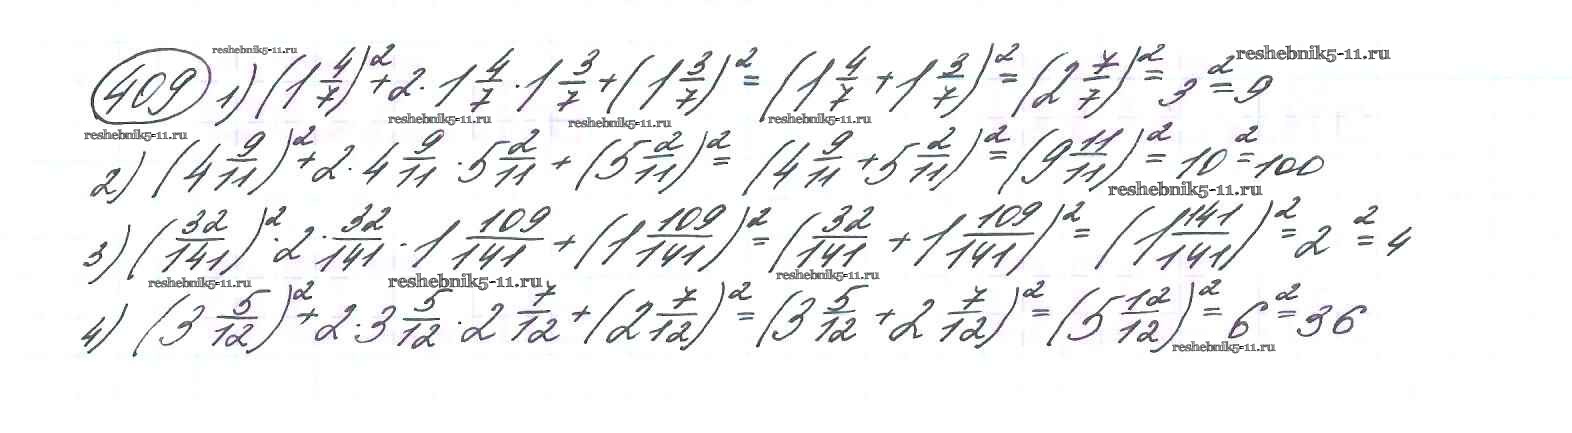 reshebnik5-11.ru
reshebnik5-11.ru
409 1) (1 4/7)² + 2 · 1 4/7 · 1 3/7 + (1 3/7)² = (1 4/7 + 1 3/7)² = (2 7/7)² = 3² = 9
reshebnik5-11.ru reshebnik5-11.ru reshebnik5-11.ru reshebnik5-11.ru
2) (4 9/11)² + 2 · 4 9/11 · 5 2/11 + (5 2/11)² = (4 9/11 + 5 2/11)² = (9 11/11)² = 10² = 100
reshebnik5-11.ru
3) (32/141)² · 2 · 32/141 · 1 109/141 + (1 109/141)² = (32/141 + 1 109/141)² = (1 141/141)² = 2² = 4
reshebnik5-11.ru reshebnik5-11.ru reshebnik5-11.ru
4) (3 5/12)² + 2 · 3 5/12 · 2 7/12 + (2 7/12)² = (3 5/12 + 2 7/12)² = (5 12/12)² = 6² = 36
reshebnik5-11.ru